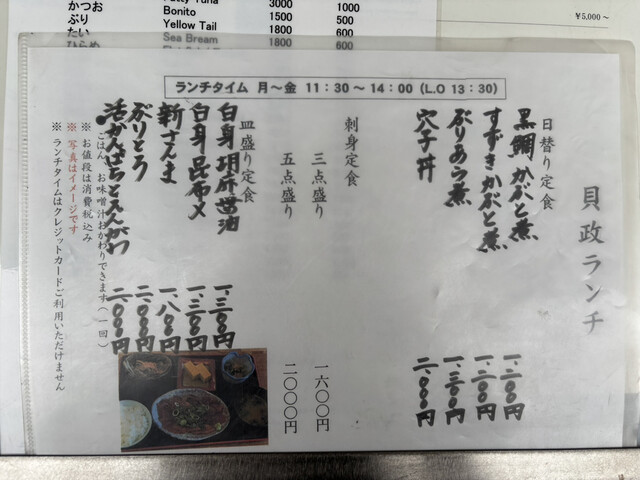 かつお Bonito 3000 1000
ぶり Yellow Tail 1500 500
たい Sea Bream 1800 600
ひらめ 1800 600
¥5,000～
ランチタイム 月～金 11：30～14：00（L.O 13：30）
貝政ランチ
日替り定食
黒鯛かぶと煮 一、二〇〇円
すずきかぶと煮 一、二〇〇円
ぶりあら煮 一、三〇〇円
穴子丼 二、〇〇〇円
刺身定食
三点盛り 一六〇〇円
五点盛り 二〇〇〇円
皿盛り定食
白身胡麻醤油 一、三〇〇円
白身昆布〆 一、三〇〇円
新さんま 一、八〇〇円
ぶりとろ 二、〇〇〇円
活かんぱちとえんがわ 二、〇〇〇円
ごはん、お味噌汁おかわりできます（一回）
※お値段は消費税込み
※写真はイメージです
※ランチタイムはクレジットカードご利用いただけません